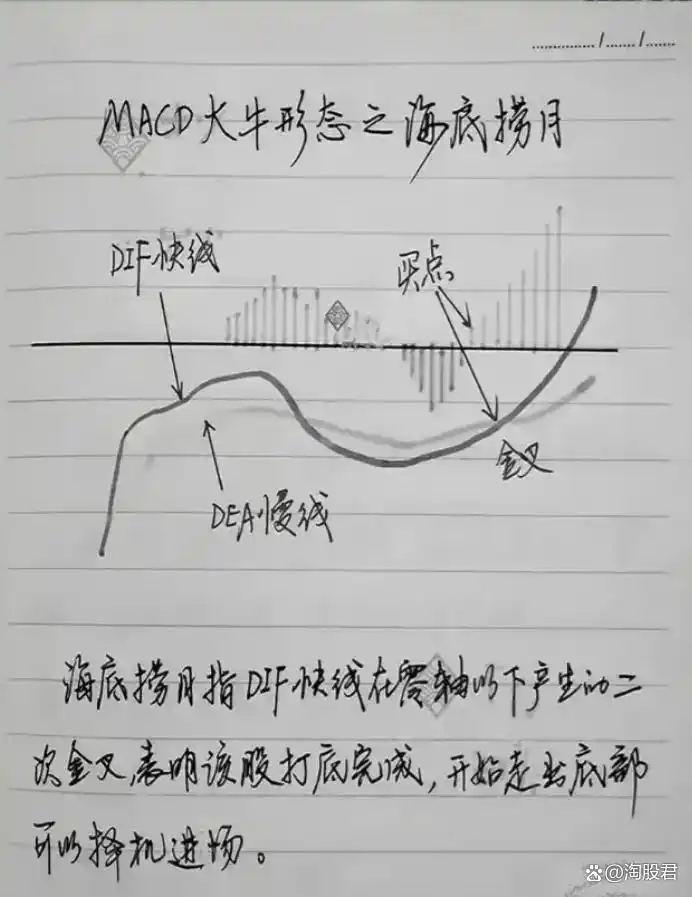 MACD大牛形态之海底捞月
DIF快线
买点
金叉
DEA慢线
海底捞月指DIF快线在零轴以下产生的二
次金叉,表明该股打底完成,开始走出底部
可以择机进场。
@淘股君